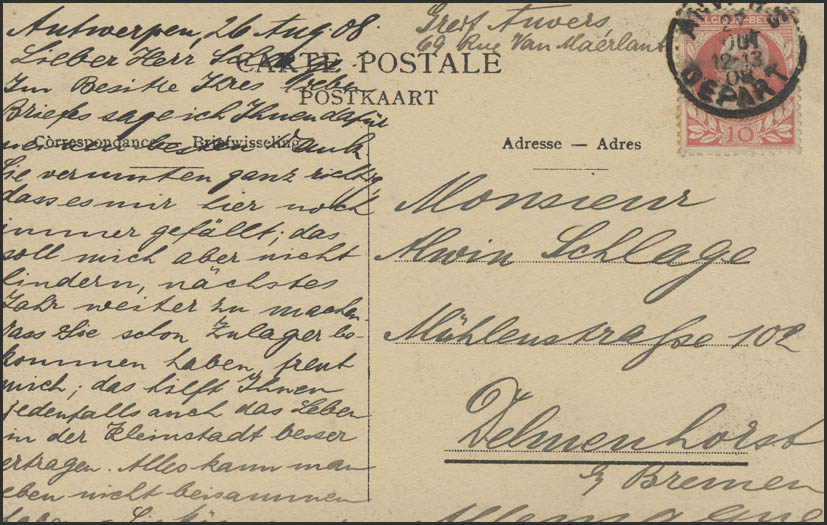 Antwerpen, 26 Aug 08.
Lieber Herr
Im Besitze Ihres lieben
Briefes sage ich Ihnen dafür
meinen besten Dank
Sie vermuten ganz richtig,
dass es mir hier noch
immer gefällt; das
soll mich aber nicht
hindern, nächstes
Jahr weiter zu machen.
Dass Sie schon Zulager be-
kommen haben, freut
mich; das hilft Ihnen
jedenfalls auch das Leben
in der Kleinstadt besser
ertragen. Alles kann man
eben nicht beisammen
haben.
CARTE POSTALE
POSTKAART
Correspondance Briefwisseling
Greif Anvers
69 Rue Van Maérlant
12-13
08
DEPART
10
Adresse — Adres
Monsieur
Alwin Schlage
Mühlenstraße 102
Delmenhorst
b/ Bremen
Allemagne